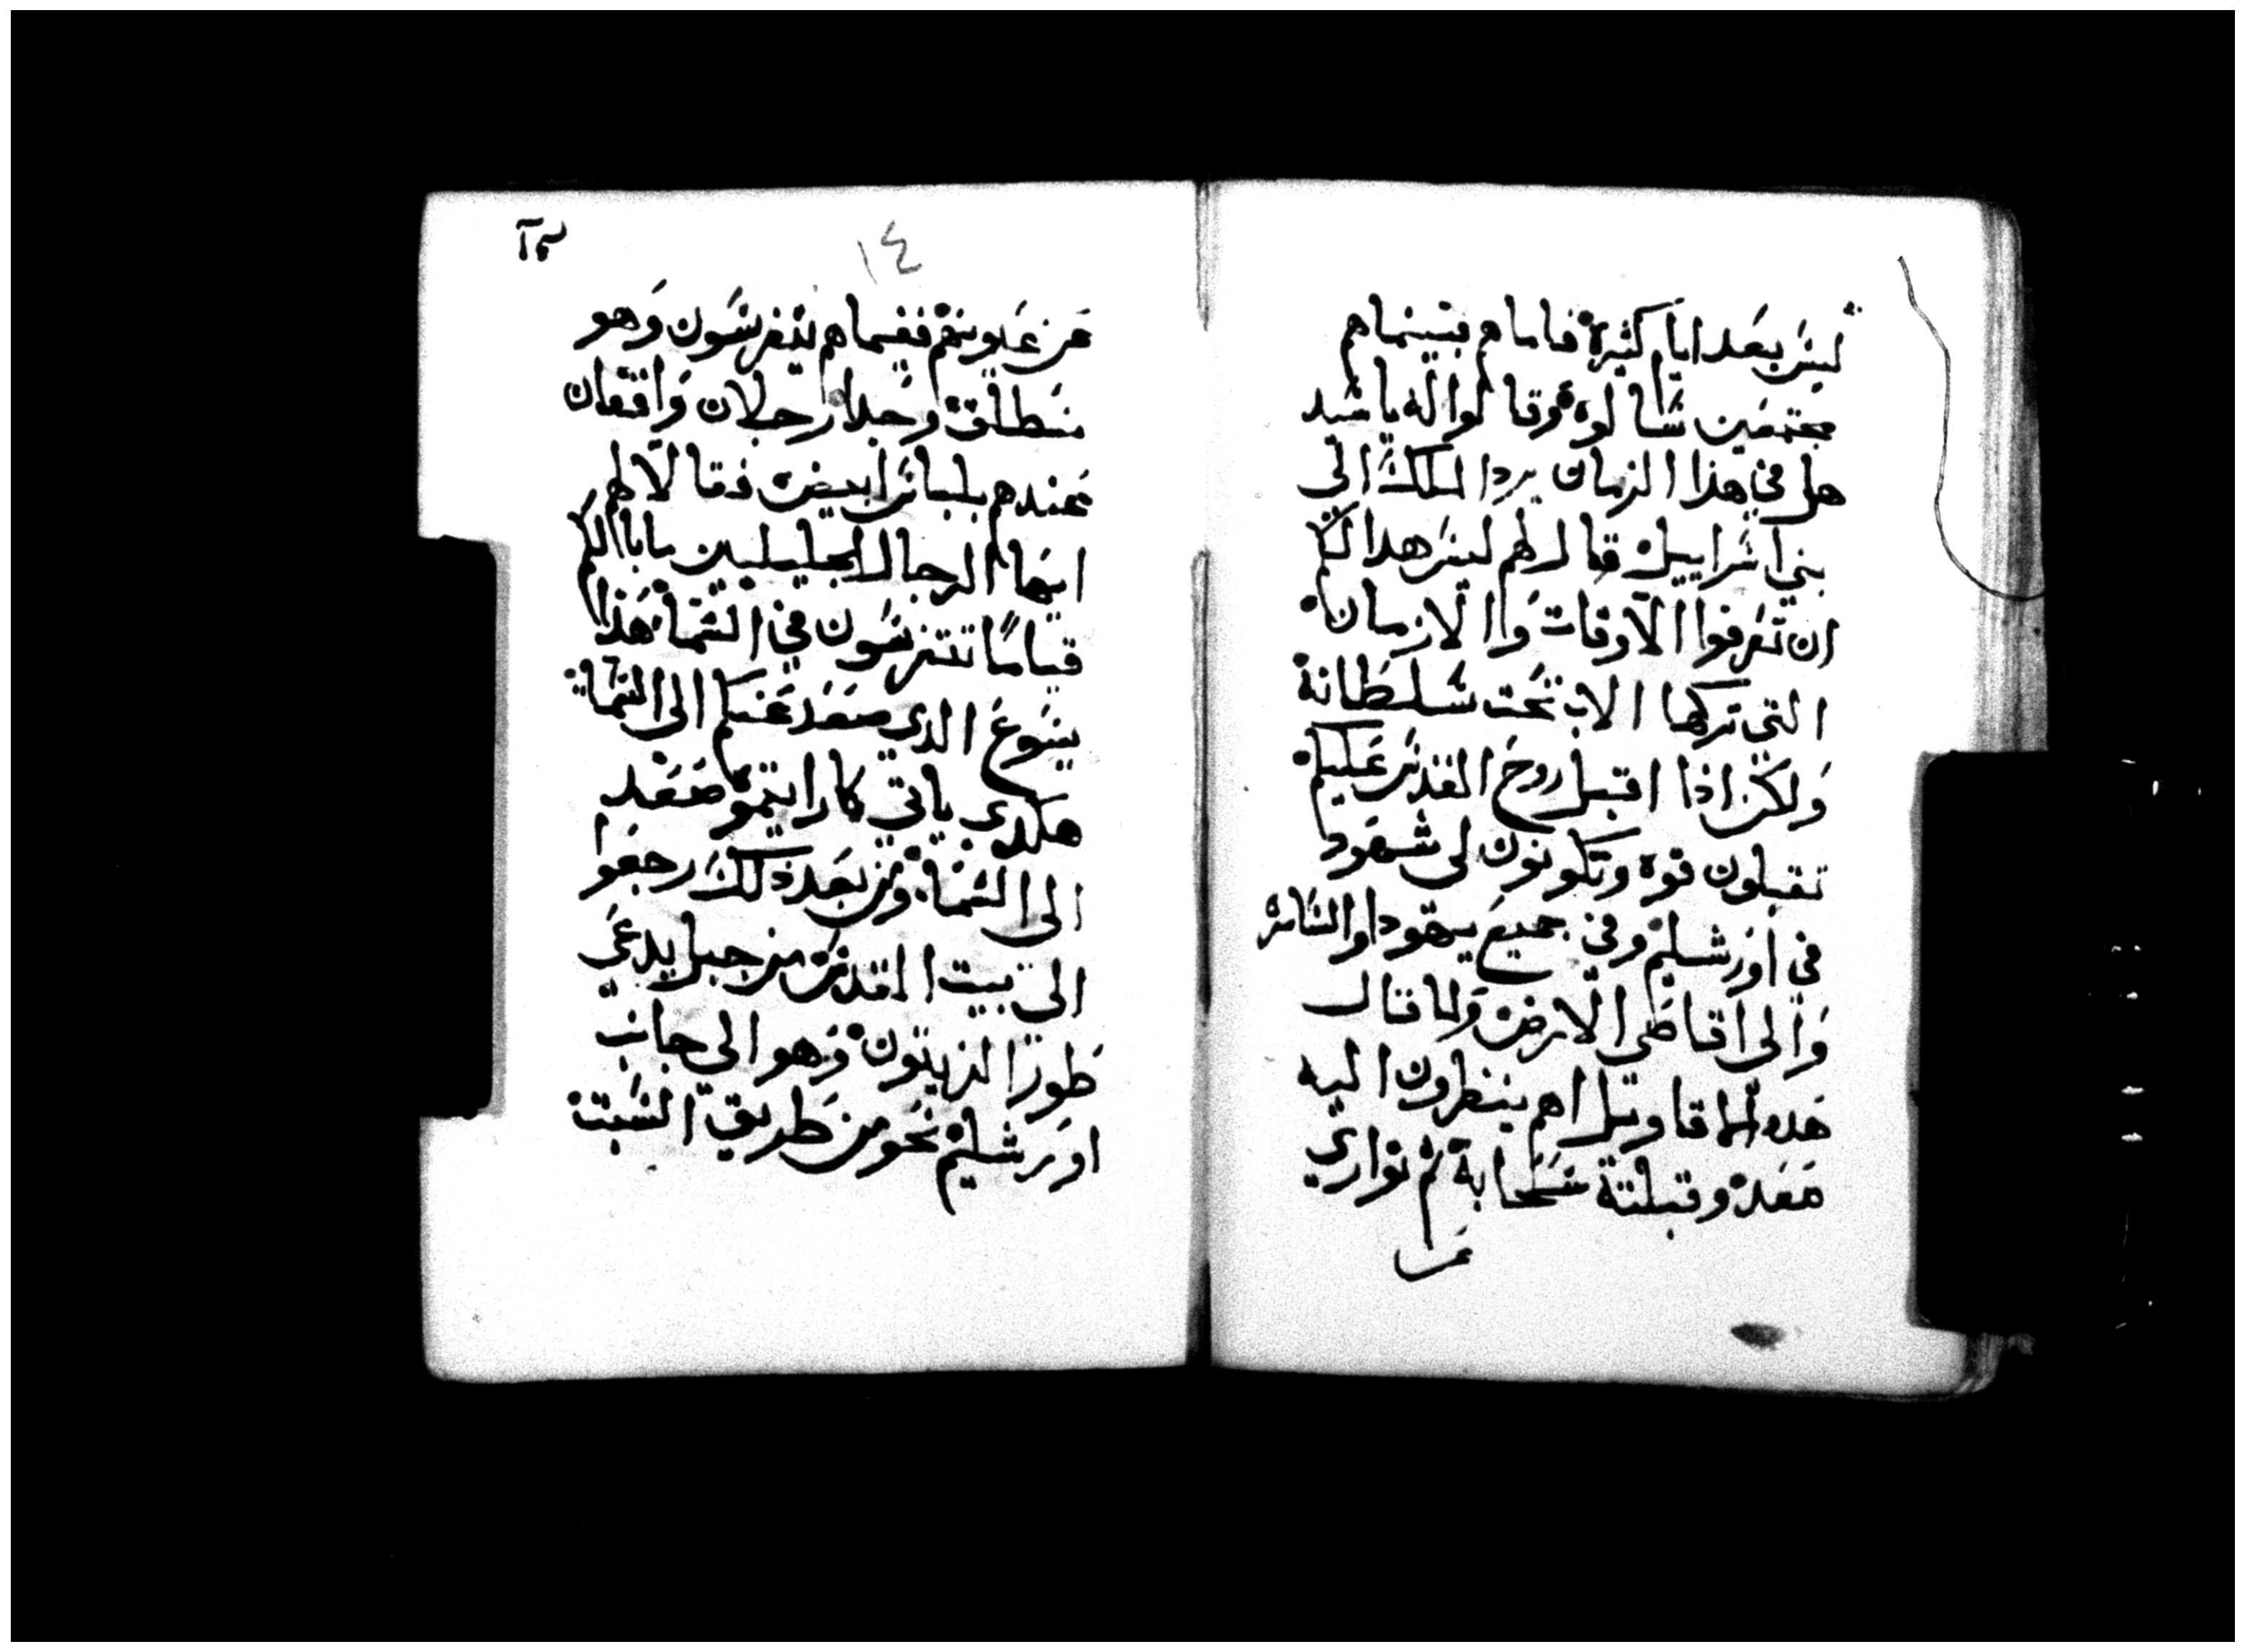 ليس بعد ايام كثيرة فاما هم فبينما هم
مجتمعين سالوه وقالوا له يا سيد
هل في هذا الزمان يرد الملك الي
بني اسراييل قال لهم ليس هدا لكم
ان تعرفوا الاوقات واالازمان
التي تركها الاب تحت سلطانة
ولكن اذا اقبل روح القدس عليكم
تقبلون قوه وتكونون لي شهود
في اورشليم وفي جميع يهودا والسامره
والي اقاصي الارض ولما قال
هده الاقاويل اهم ينظرون اليه
صعد وقبلتة سحابة ثم تواري
عن
١٤
عن عيونهم ففيما هم يتفرسون وهو
منطلق وجدا رجلان واقفان
عندهم بلباس ابيض فقالا لهم
ايها الرجال الجليليين ما بالكم
قياما تتفرسون في السما هذا
يسوع الدي صعد عنكم الى السما
هكدي ياتي كما رايتموه صعد
الى السما ومن بعد ذلك رجعوا
الي بيت المقدس من جبل يدعي
طور الزيتون وهو الي جانب
اورشليم نحو من طريق السبت